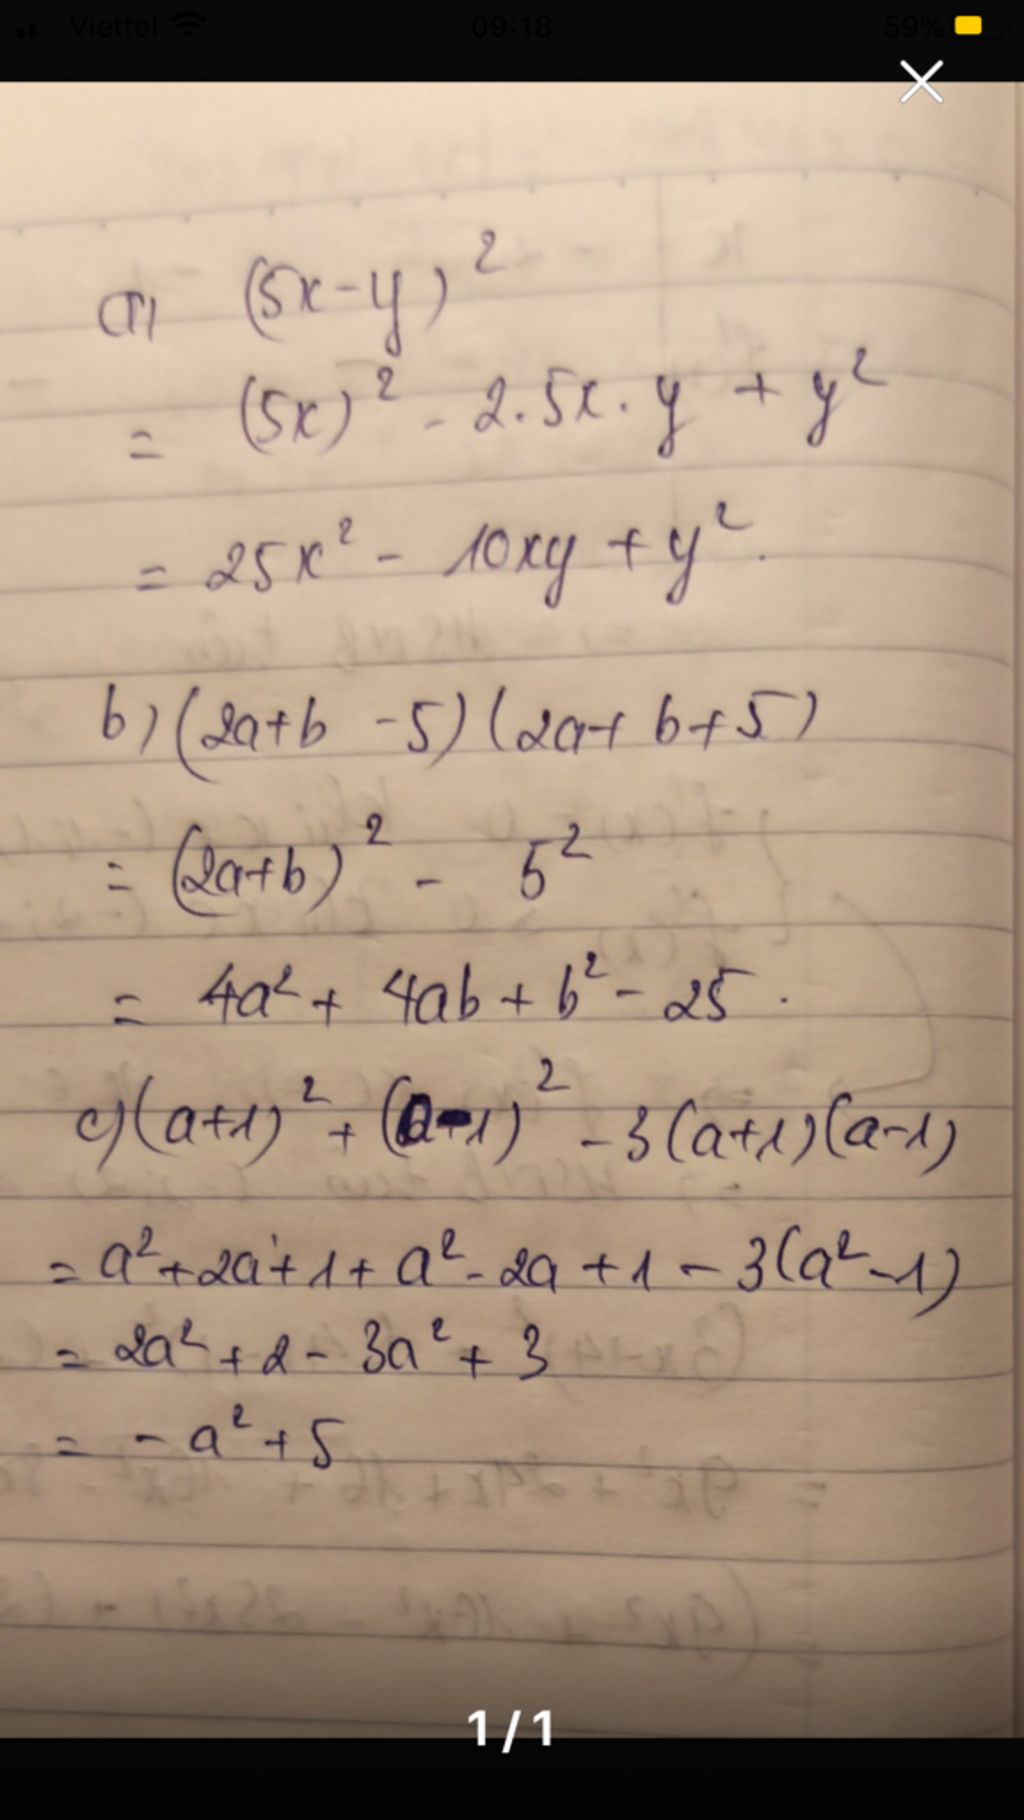 Viettel 09:18 59%
a) (5x-y)²
= (5x)² - 2.5x.y + y²
= 25x² - 10xy + y².
b) (2a+b -5)(2a+ b+5)
= (2a+b)² - 5²
= 4a² + 4ab + b² - 25.
c) (a+1)² + (a-1)² - 3(a+1)(a-1)
= a² + 2a + 1 + a² - 2a + 1 - 3(a² - 1)
= 2a² + 2 - 3a² + 3
= - a² + 5
1/1